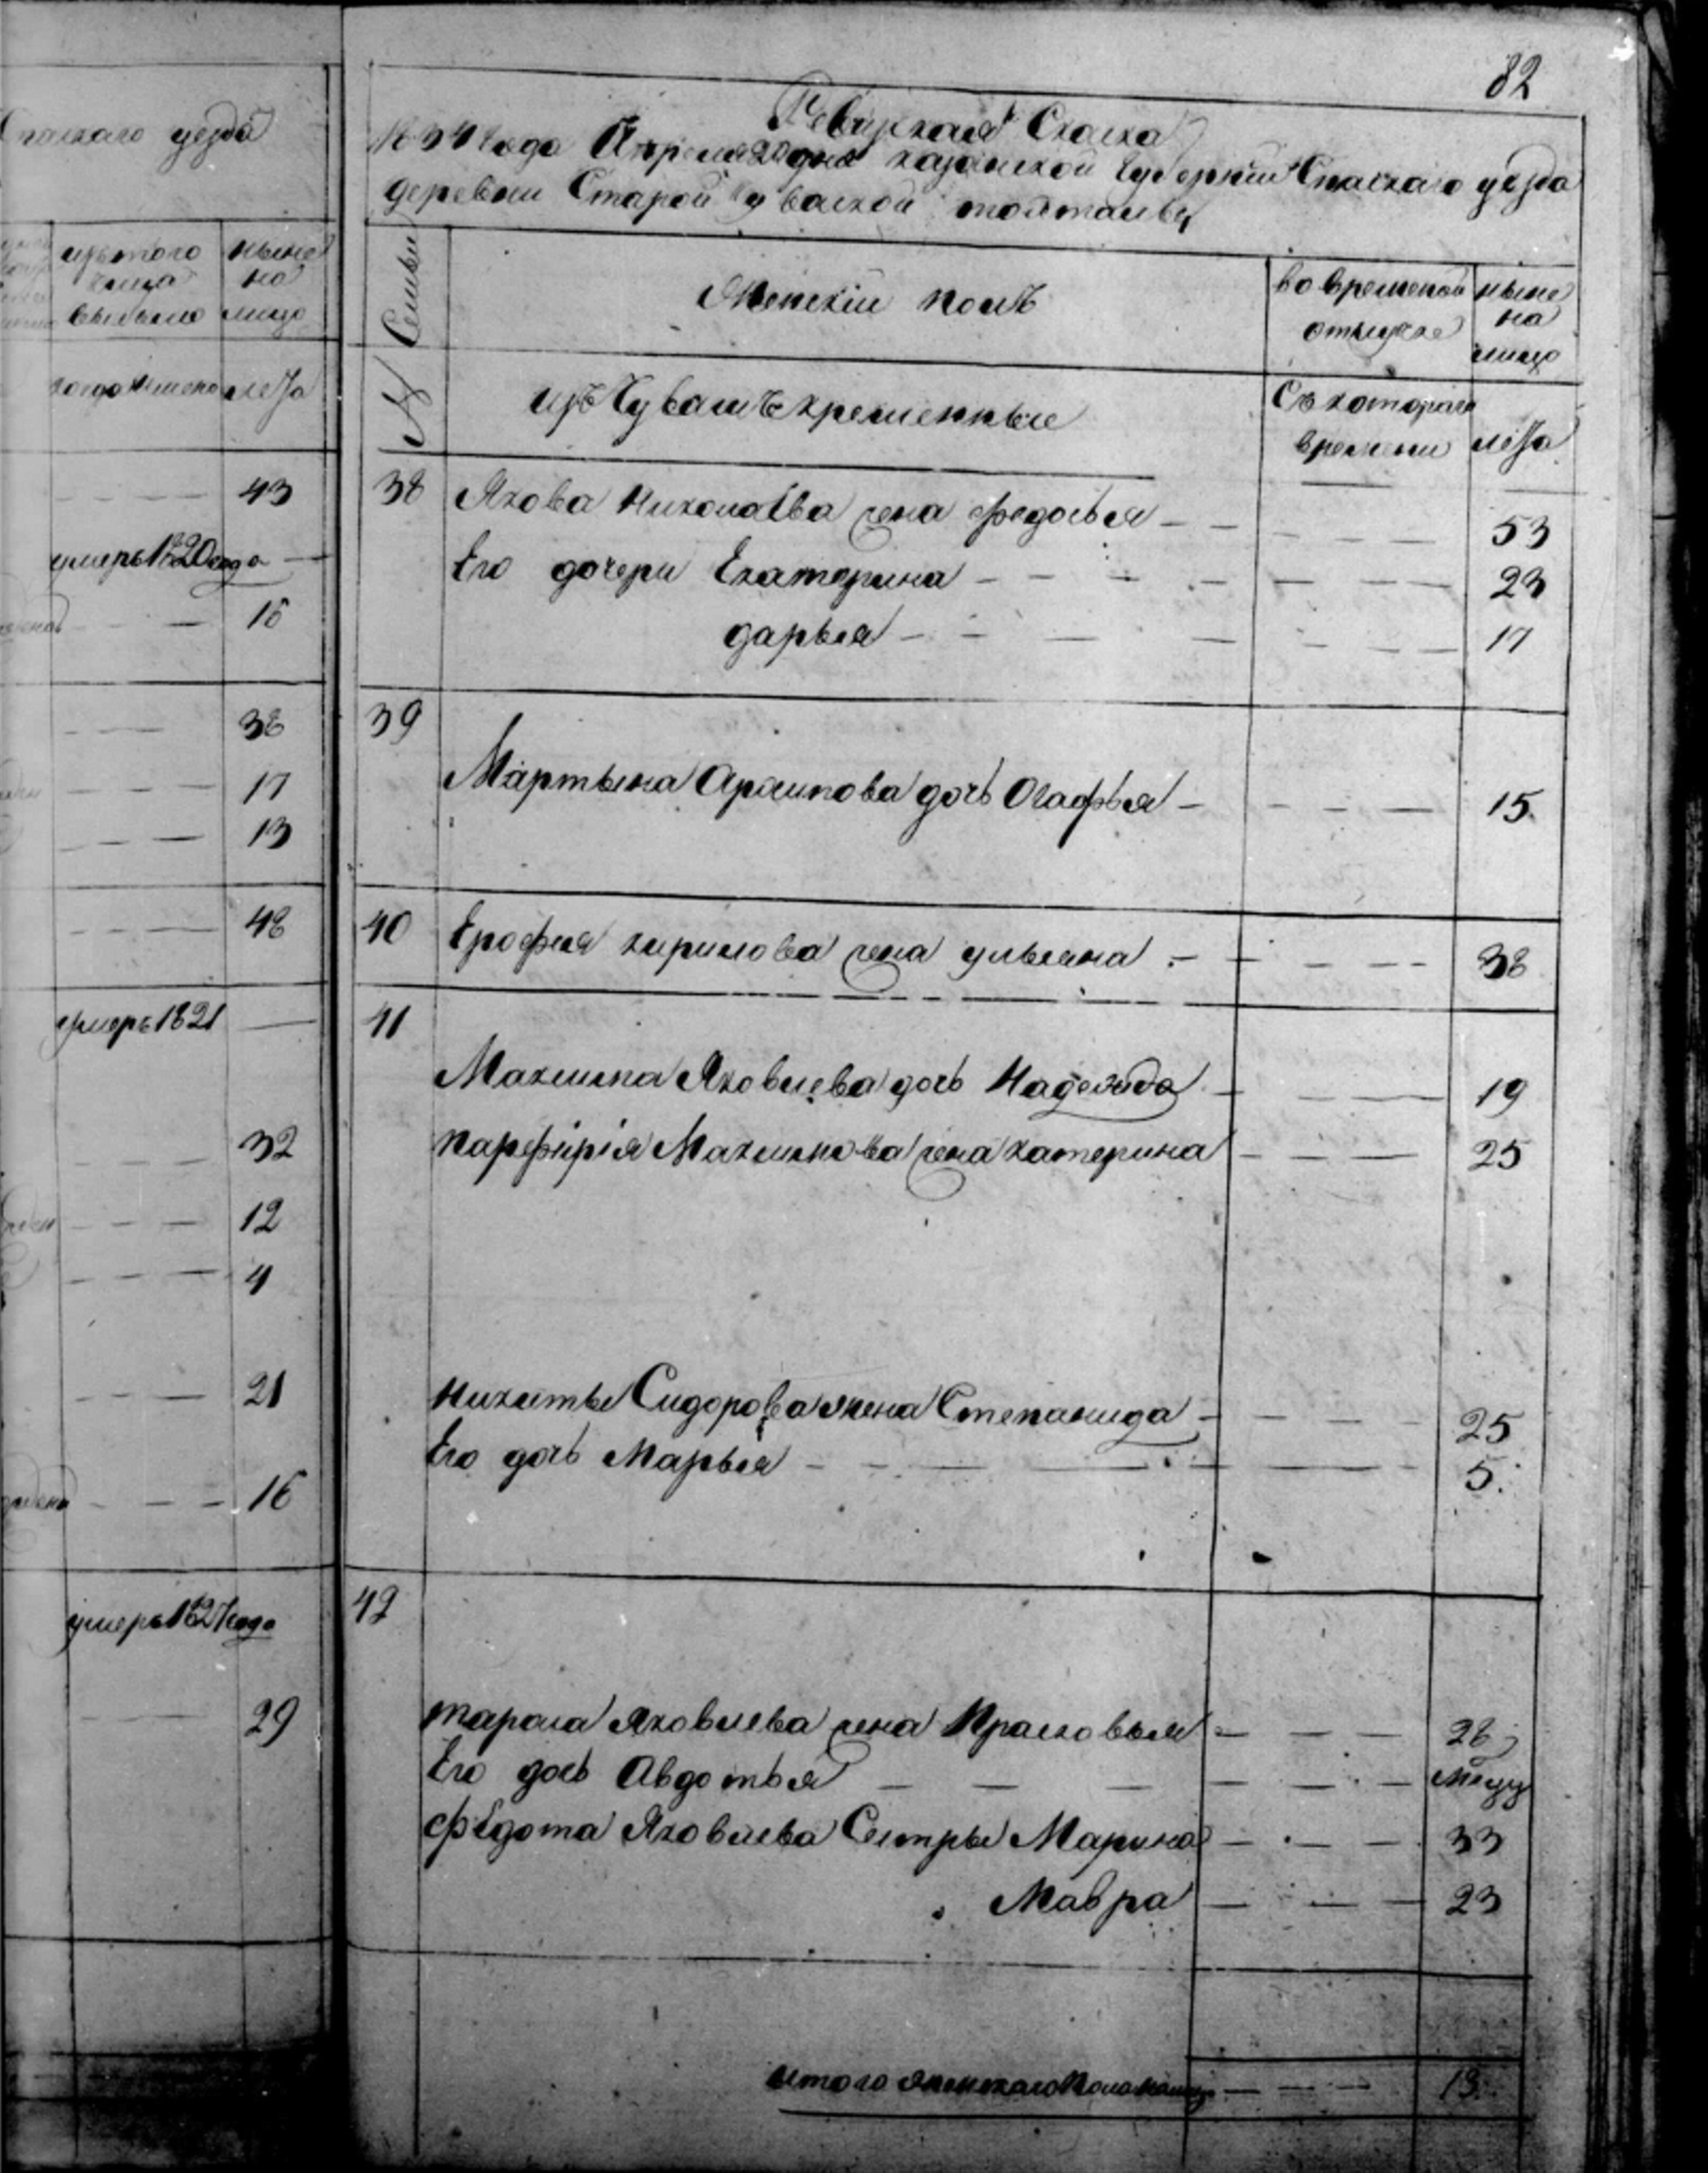 Спаскаго уезда
изъ того числа выбыло
ныне на лицо
когда имено
лета
43
умеръ 1820 года
16
38
17
13
48
умеръ 1821
32
12
4
21
16
умеръ 1827 года
29
82
Ревизская Сказка
1834 года Апреля 20 дня казанской Губернии Спаскаго уезда
деревни Старой Чувалской
№ Семьи
Женскїи полъ
во временной отлучке
ныне на лицо
изъ Чувашъ крещенные
Съ котораго времени
лета
38 Якова Николаева жена федосья 53
Его дочери Екатерина 23
дарья 17
39
Мартына Архипова дочь Огафья 15
40 Ерофея кирилова жена ульяна 38
41
Максима Яковлева дочь Надежда 19
парфирїя Максимова жена катерина 25
никиты Сидорова жена Степанида 25
Его дочь Марья 5
42
тараса Яковлева жена Прасковья 28
Его дочь Авдотья
федота Яковлева Сестры Марина 33
Мавра 23
итого женскаго пола налицо 13